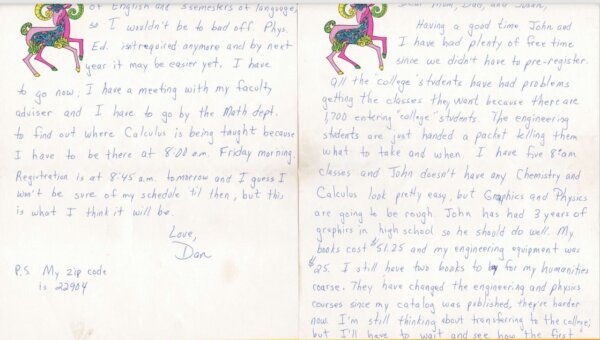 of English and 3 semesters of language,
so I wouldn't be to bad off. Phys.
Ed. isn't required anymore and by next
year it may be easier yet. I have
to go now; I have a meeting with my faculty
adviser and I have to go by the Math dept.
to find out where Calculus is being taught because
I have to be there at 8:00 a.m. Friday morning.
Registration is at 8:45 a.m. tomorrow and I guess I
won't be sure of my schedule 'til then, but this
is what I think it will be.
Love,
Dan
P.S. My zip code
is 22904
Dear Mom, Dad, and
Having a good time. John and
I have had plenty of free time
since we didn't have to pre-register.
All the "college" students have had problems
getting the classes they want because there are
1,700 entering "college" students. The engineering
students are just handed a packet telling them
what to take and when. I have five 8:00am
classes and John doesn't have any. Chemistry and
Calculus look pretty easy, but Graphics and Physics
are going to be rough. John has had 3 years of
graphics in high school so he should do well. My
books cost $51.25 and my engineering equipment was
$25. I still have two books to buy for my humanities
coarse. They have changed the engineering and physics
courses since my catalog was published, they're harder
now. I'm still thinking about transferring to the college,
but I'll have to wait and see how the first